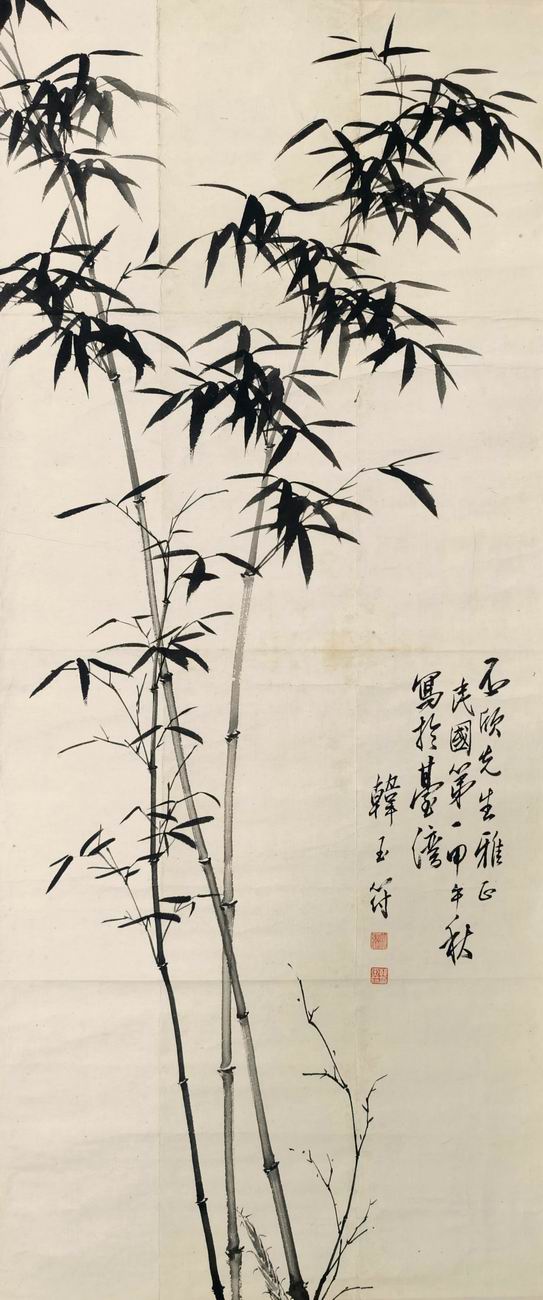 丕欣先生雅正
民國第一甲午秋
寫於臺灣
韓玉符